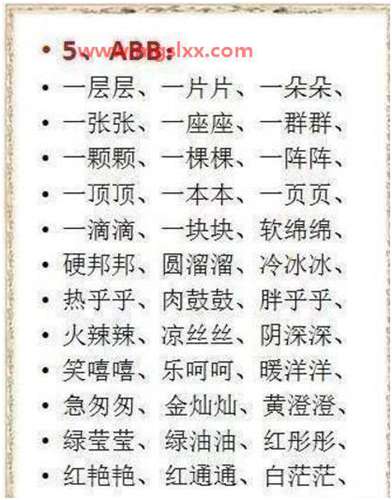 5、ABB：
一层层、一片片、一朵朵、
一张张、一座座、一群群、
一颗颗、一棵棵、一阵阵、
一顶顶、一本本、一页页、
一滴滴、一块块、软绵绵、
硬邦邦、圆溜溜、冷冰冰、
热乎乎、肉鼓鼓、胖乎乎、
火辣辣、凉丝丝、阴深深、
笑嘻嘻、乐呵呵、暖洋洋、
急匆匆、金灿灿、黄澄澄、
绿莹莹、绿油油、红彤彤、
红艳艳、红通通、白茫茫、